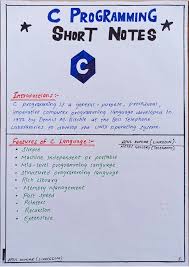 C PROGRAMMING
SHORT NOTES
C
Introduction:-
C programming is a general-purpose, procedural,
imperative computer programming language developed in
1972 by Dennis M. Ritchie at the Bell Telephone
Laboratories to develop the UNIX operating system.
Features of C Language:-
Simple
Machine Independent or portable
Mid-level programming language
Structured programming language
Rich Library
Memory Management
Fast Speed
Pointers
Recursion
Extensible